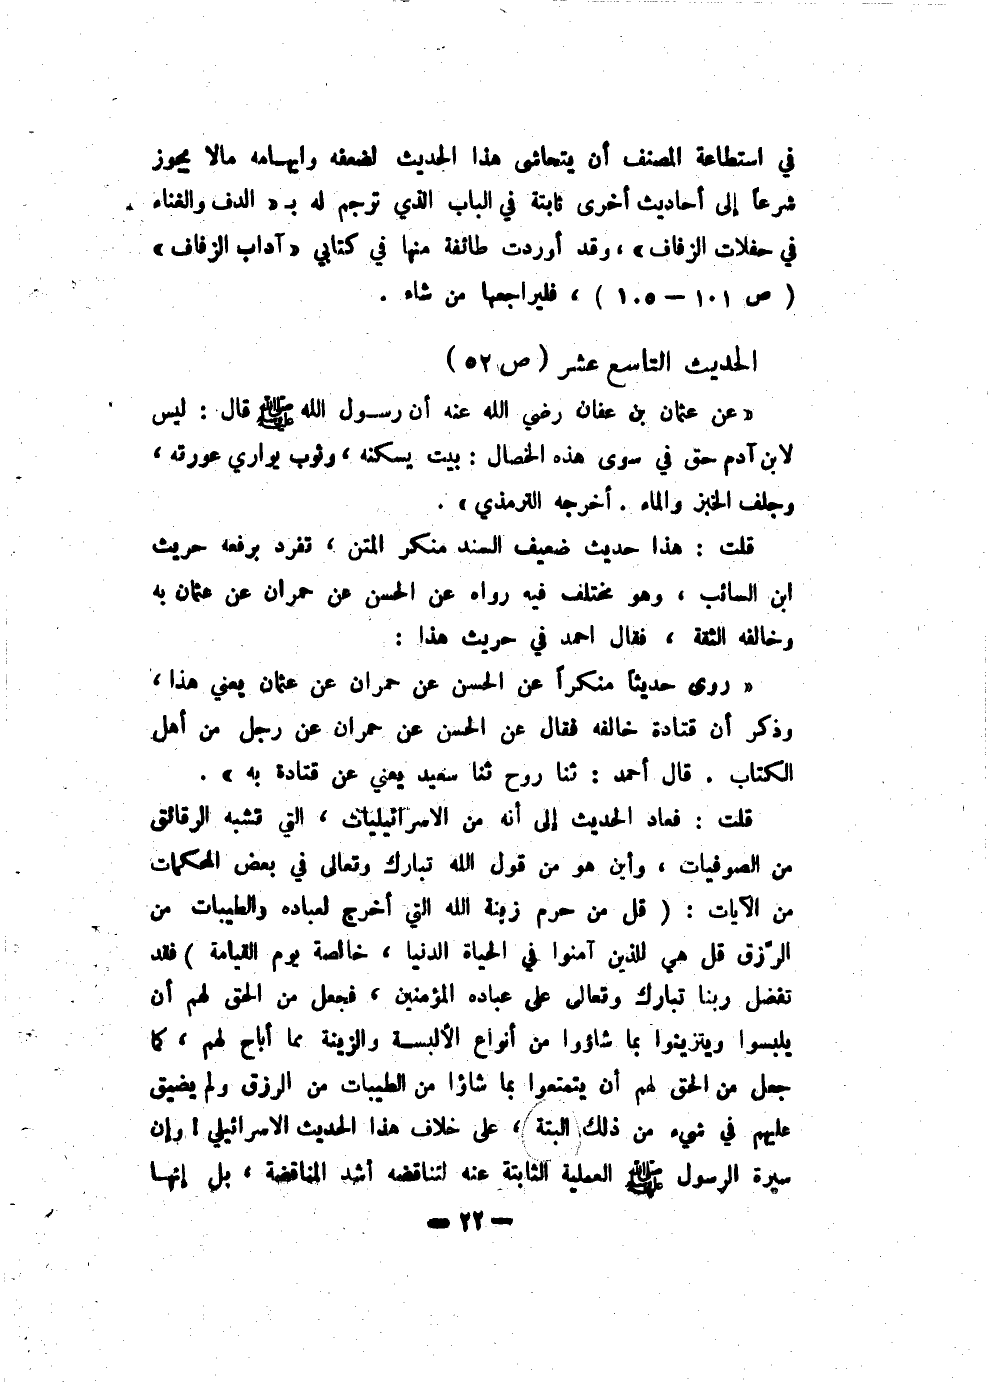 في استطاعة المصنف أن يتحاشى هذا الحديث لضعفه وايهـامه مالا يجوز
شرعاً إلى أحاديث أخرى ثابتة في الباب الذي ترجم له بـ « الدف والغناء
في حفلات الزفاف » ، وقد أوردت طائفة منها في كتابي « آداب الزفاف »
( ص ١٠١ – ١٠٥ ) ، فليراجعها من شاء .
الحديث التاسع عشر ( ص ٥٢ )
« عن عثمان بن عفان رضي الله عنه أن رسـول الله ﷺ قال : ليس
لابن آدم حق في سوى هذه الخصال : بيت يسكنه ، وثوب يواري عورته ،
وجلف الخبز والماء . أخرجه الترمذي » .
قلت : هذا حديث ضعيف السند منكر المتن ، تفرد برفعه حريث
ابن السائب ، وهو مختلف فيه رواه عن الحسن عن حمران عن عثمان به
وخالفه الثقة ، فقال احمد في حريث هذا :
« روى حديثاً منكراً عن الحسن عن حمران عن عثمان يعني هذا ،
وذكر أن قتادة خالفه فقال عن الحسن عن حمران عن رجل من أهل
الكتاب . قال أحمد : ثنا روح ثنا سعيد يعني عن قتادة به » .
قلت : فعاد الحديث إلى أنه من الاسرائيليات ، التي تشبه الرقائق
من الصوفيات ، وأين هو من قول الله تبارك وتعالى في بعض المحكمات
من الآيات : ( قل من حرم زينة الله التي أخرج لعباده والطيبات من
الرّزق قل هي للذين آمنوا في الحياة الدنيا ، خالصة يوم القيامة ) فقد
تفضل ربنا تبارك وتعالى على عباده المؤمنين ، فجعل من الحق لهم أن
يلبسوا ويتزينوا بما شاؤوا من أنواع الألبسـة والزينة مما أباح لهم ، كما
جعل من الحق لهم أن يتمتعوا بما شاؤا من الطيبات من الرزق ولم يضيق
عليهم في شيء من ذلك البتة ، على خلاف هذا الحديث الاسرائيلي ! وإن
سيرة الرسول ﷺ العملية الثابتة عنه لتناقضه أشد المناقضة ، بل إنهـا
– ٢٢ –